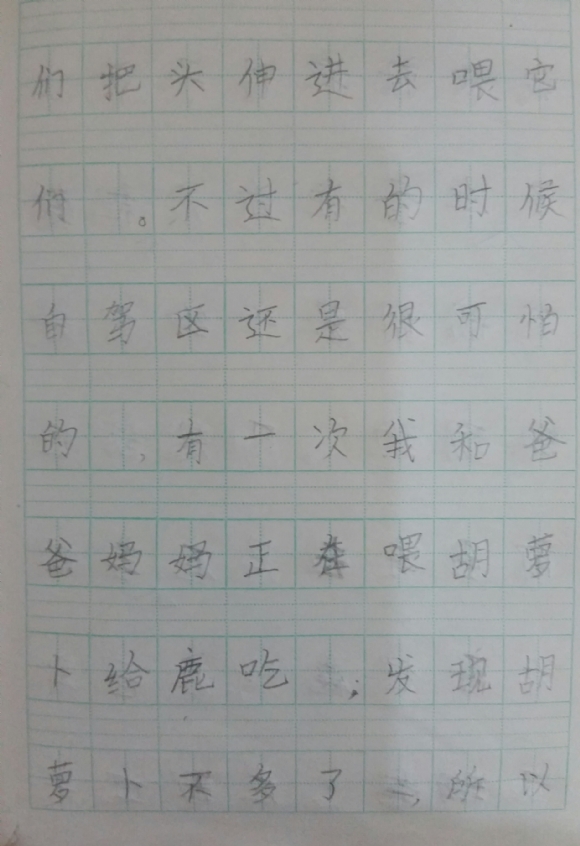 们把头伸进去喂它
们。不过有的时候
自驾区还是很可怕
的,有一次我和爸
爸妈妈正在喂胡萝
卜给鹿吃;发现胡
萝卜不多了,所以